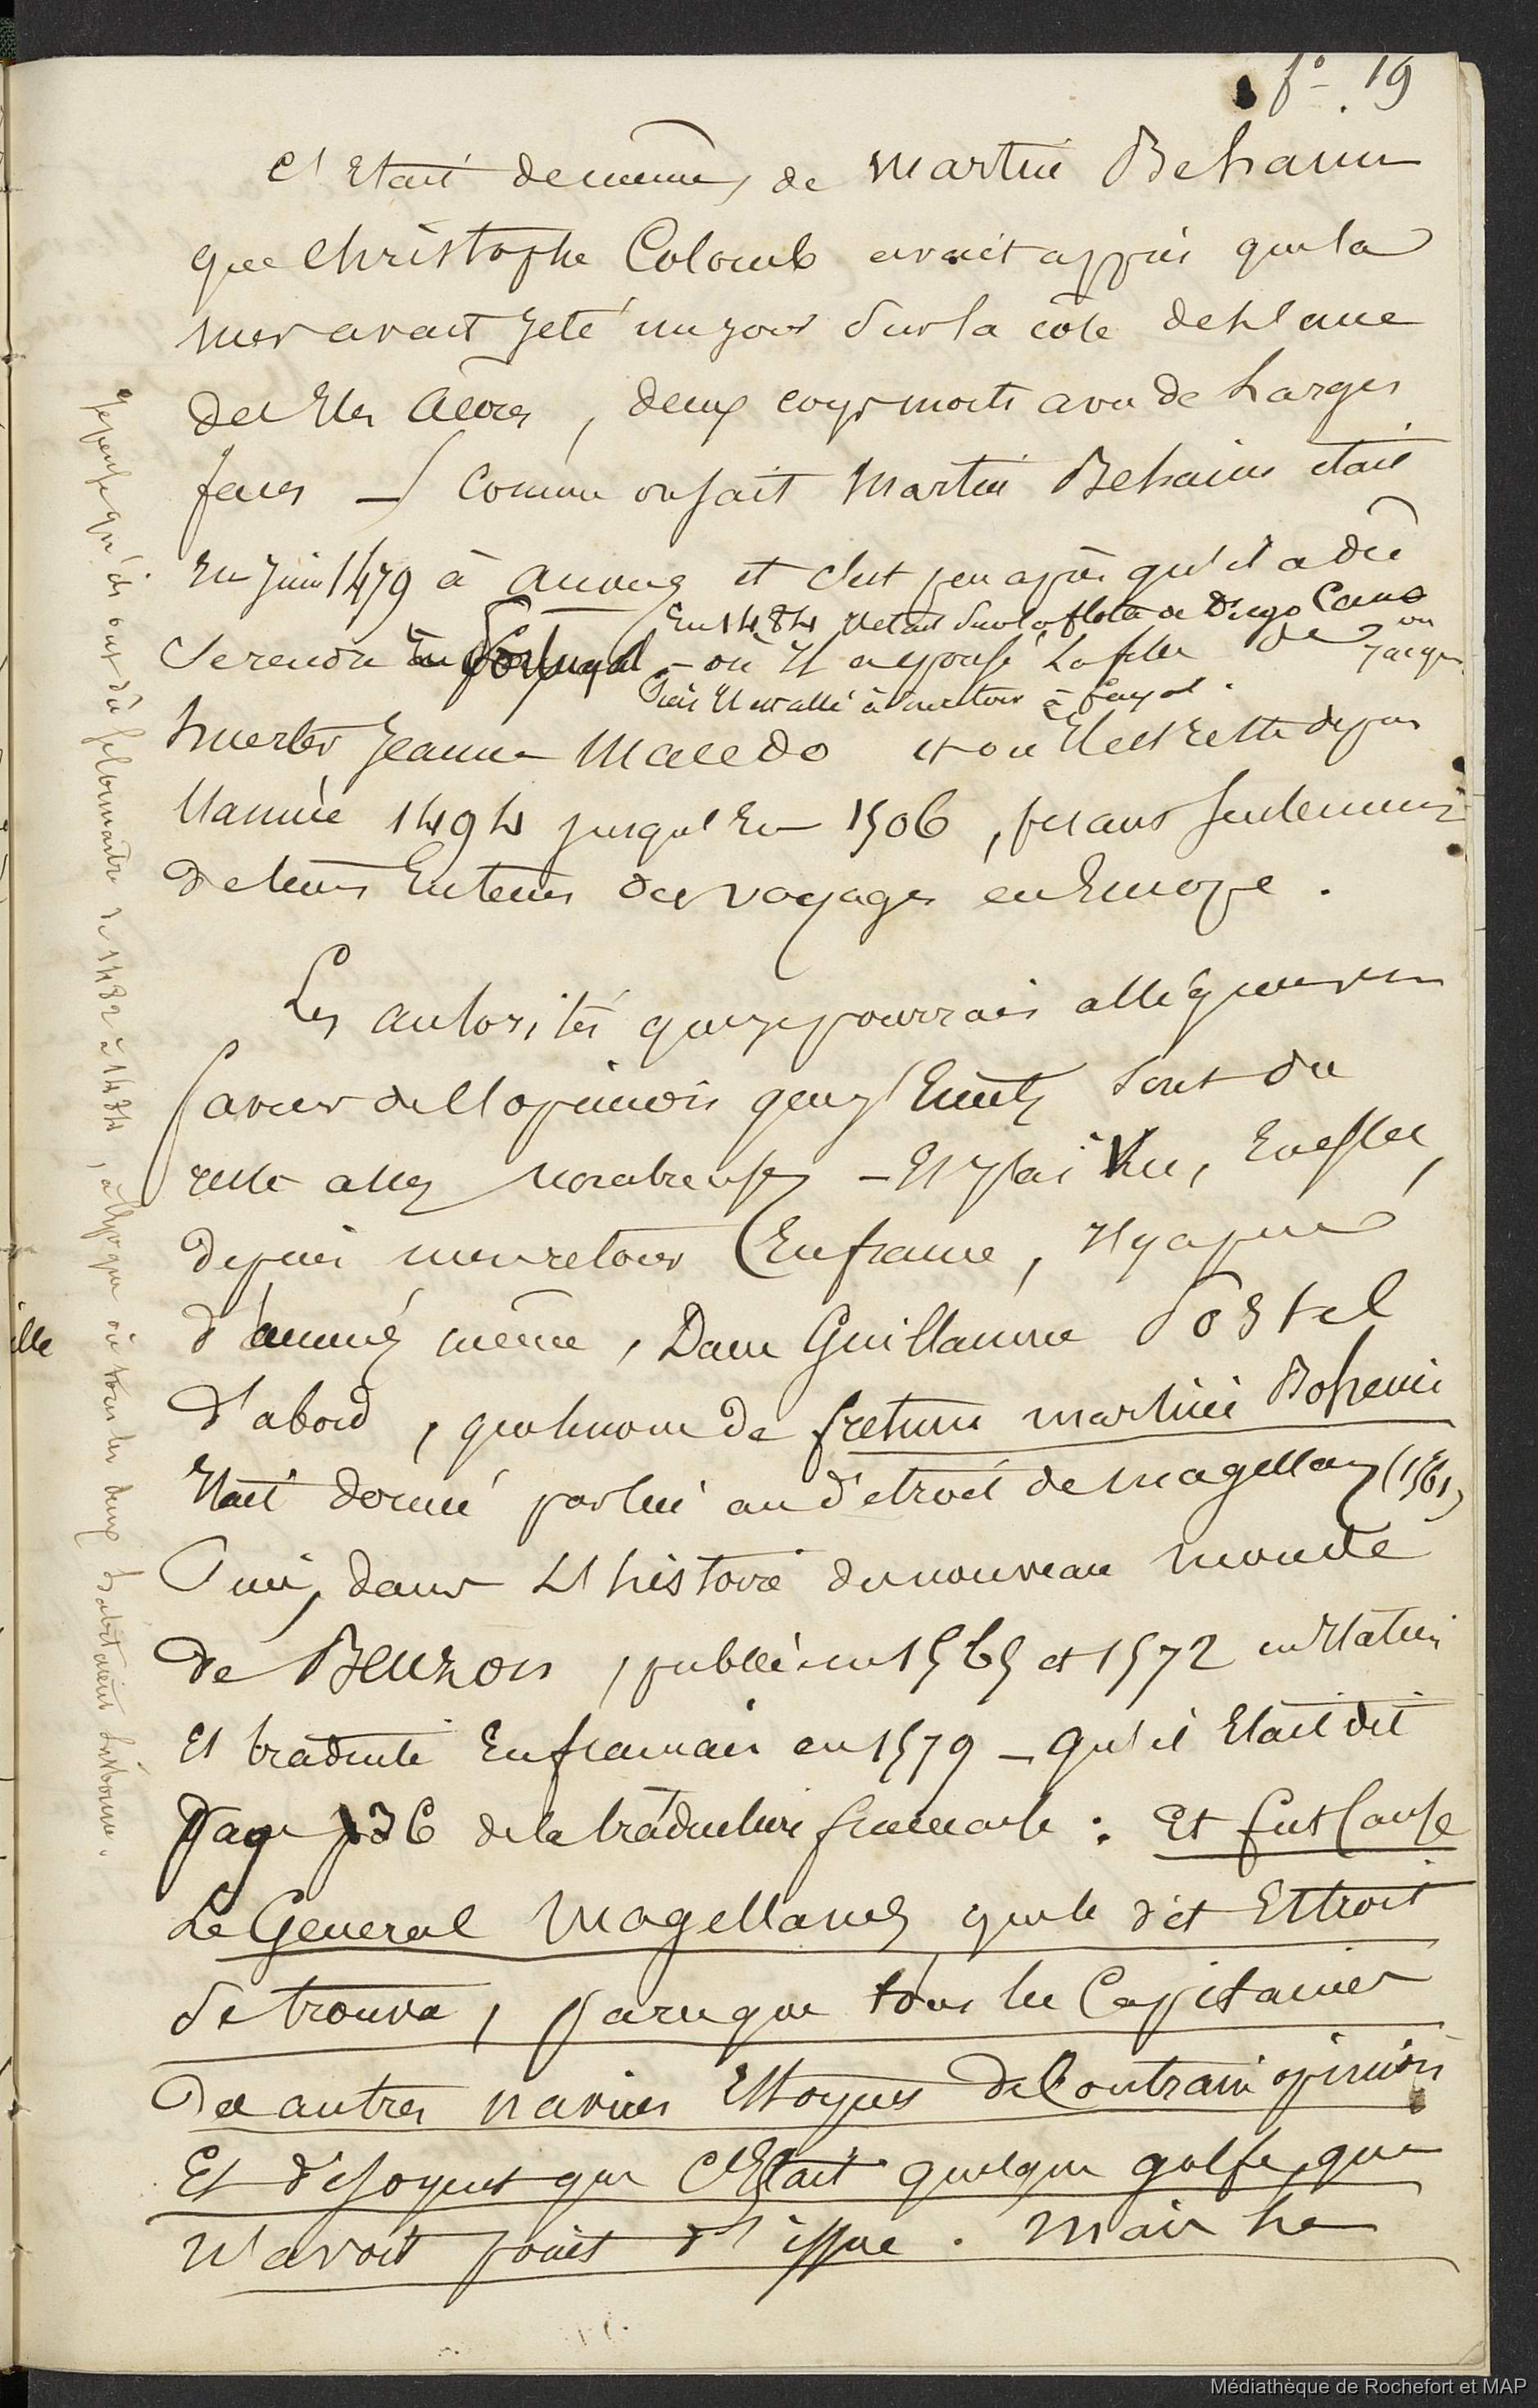 fo. 19
C'etait de même, de Martin Behaim
que Christophe Colomb avait appris que la
mer avait jeté un jour sur la côte de l'une
des Iles Acores, deux corps morts avec de larges
faces — Comme on sait Martin Behaim etait
En Juin 1479 à Anvers et c'est peu après qu'il a dû
En 1484 Il etait sur la flotte de Diego Cano
se rendre En Portugal — où Il a epousé la fille de Jacques
ou
Puis Il est allé à à Fayal.
huerter Jeanne Macedo et où Il est resté depuis
l'année 1494 jusqu'En 1506, faisant seulement
de tems En tems des voyages en Europe.
Les autorités que je pourrais alléguer en
faveur de l'opinion que j'Emets sont du
reste assez nombreuses — Et j'ai Vu, En effet,
depuis mon retour En france, Il y a peu
d'années même, Dans Guillaume Postel
d'abord, que le nom de fretum martini Bohemi
Etait donné par lui au d'etroit de Magellan (1561)
Puis, dans L'histoire du nouveau monde
de Benzoni, publié en 1565 et 1572 en Italien
Et traduite En francais en 1579 — qu'il Etait dit
Page 136 de la traduction francaise : Et fut Cause
Le General Magellanes que le d'it Estroit
se trouva, parce que tous les Capitaines
des autres navires Estoyent de Contraire opinion
Et disoyent que C'Estait quelque golfe, que
n'avoit point d'issue. Mais le
Je pense qu'ils ont dû se connaître de 1482 à 1484, à l'époque où tous les deux habitaient Lisbonne.
ille
Médiathèque de Rochefort et MAP